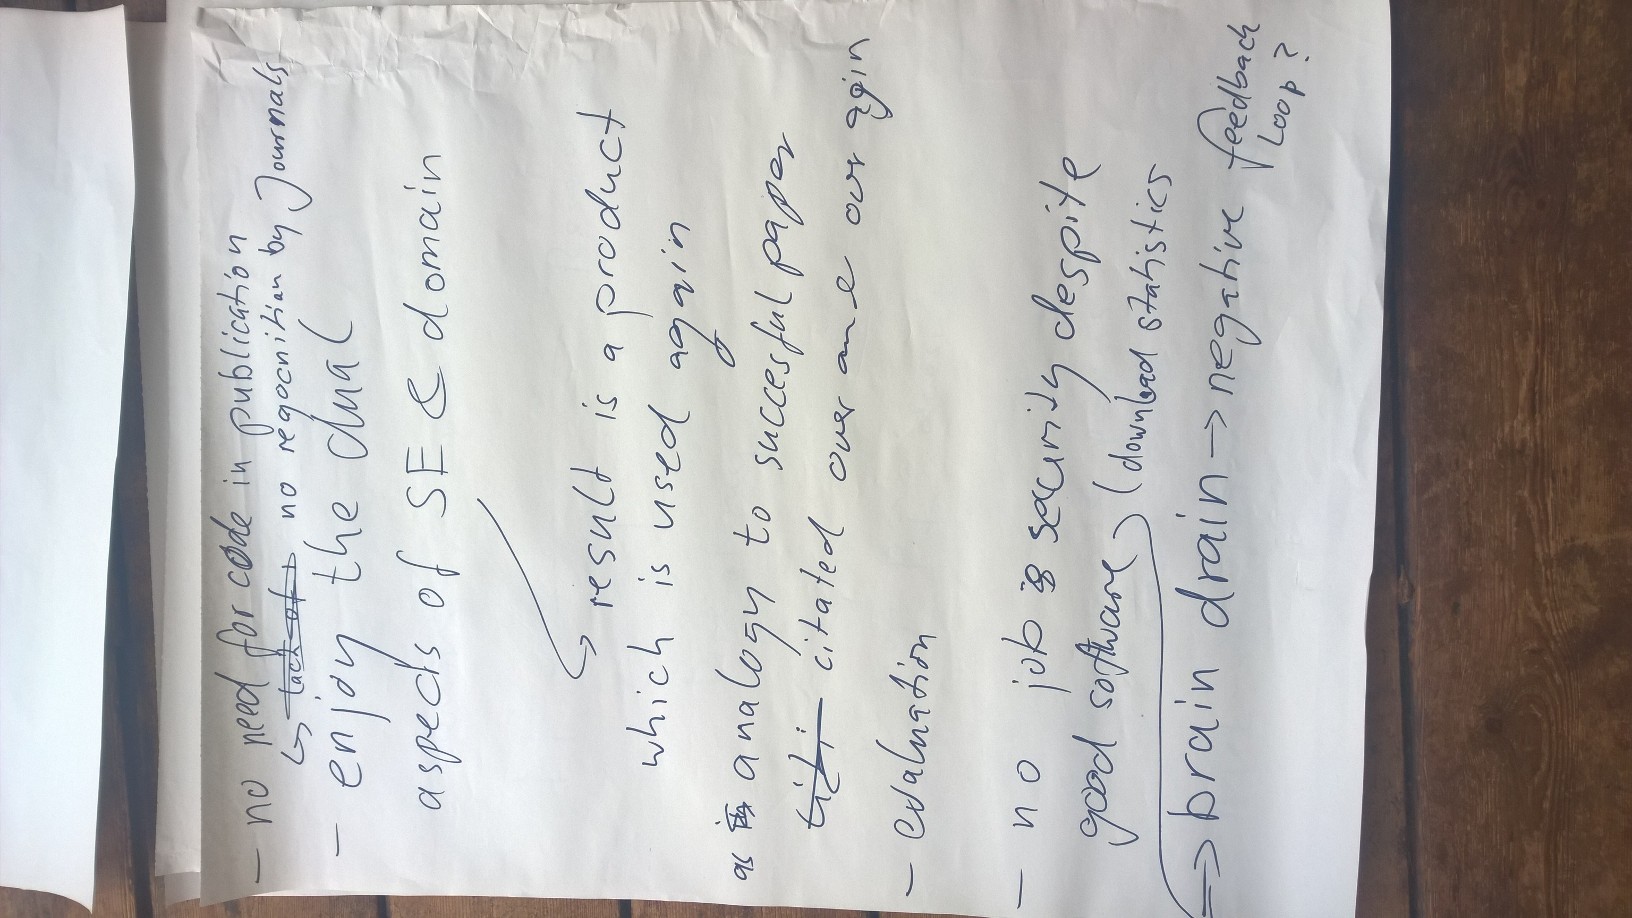 – no need for code in publication
↳ lack of no regocnition by Journals
– enjoy the dual
aspects of SE & domain
result is a product
which is used again
as analogy to succesful paper
citated over and over agin
– evaluation
– no job security despite
good software (download statistics
⇒ brain drain → negative feedback
Loop?